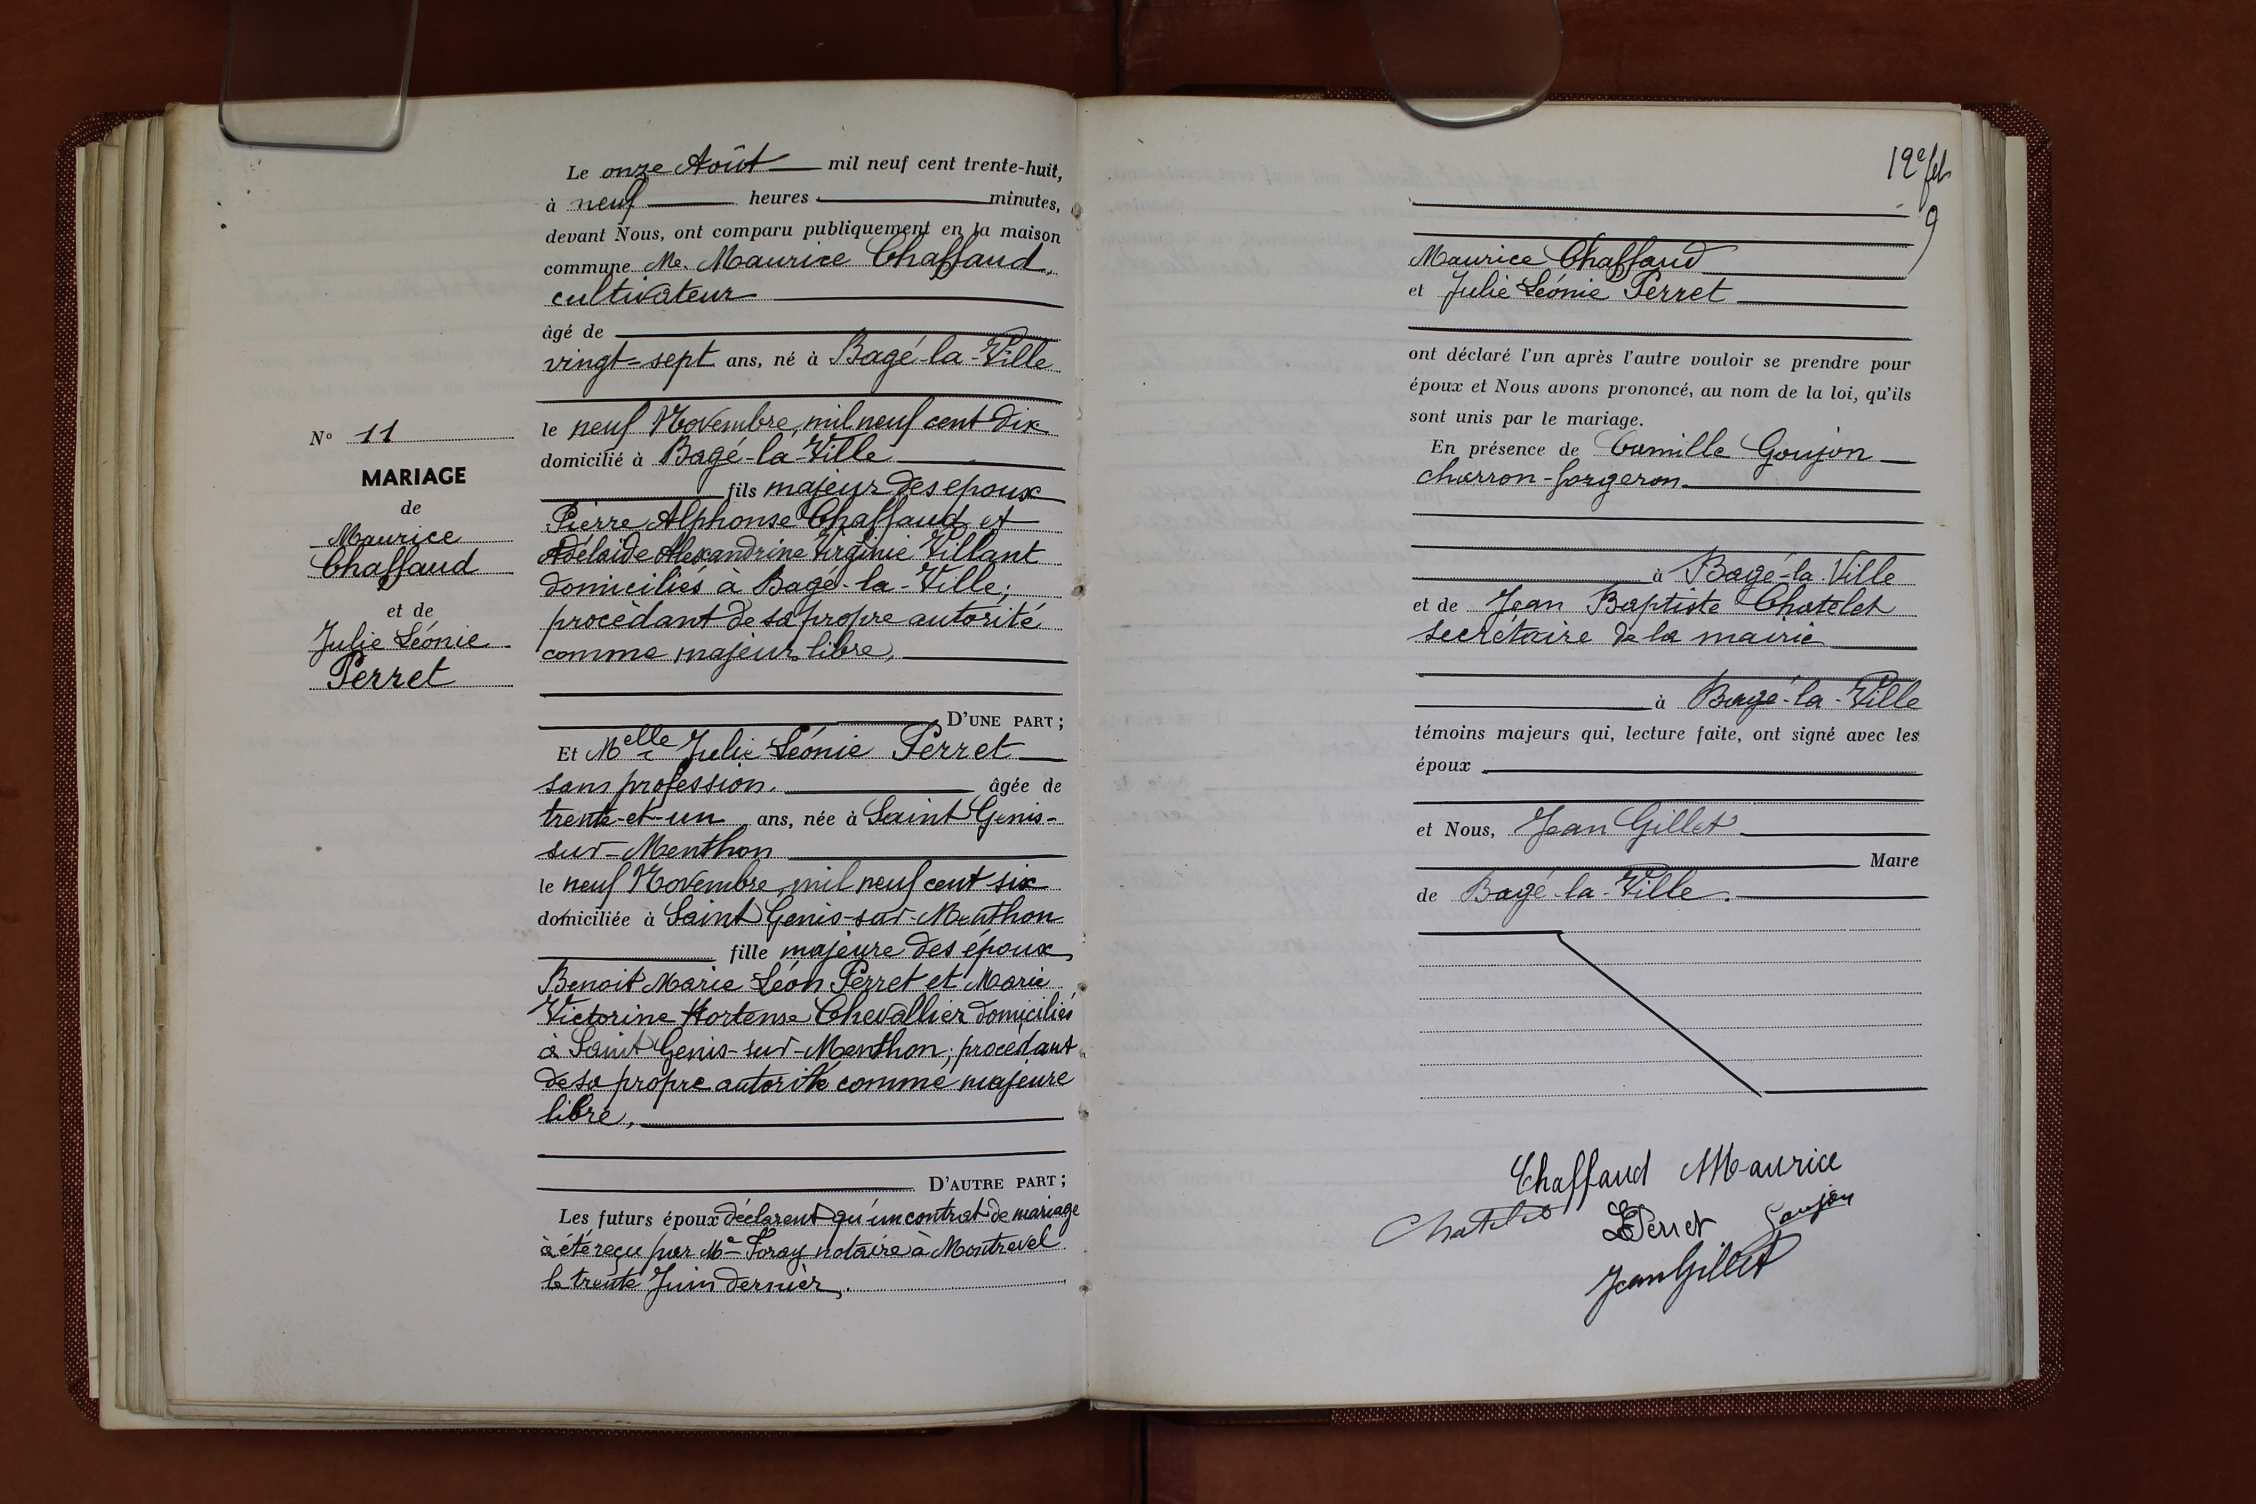 N° 11
MARIAGE
de
Maurice
Chaffaud
et de
Julie Léonie
Perret
Le onze Août mil neuf cent trente-huit,
à neuf heures minutes,
devant Nous, ont comparu publiquement en la maison
commune Mr. Maurice Chaffaud,
cultivateur
âgé de
vingt-sept ans, né à Bagé-la-Ville
le neuf Novembre mil neuf cent dix
domicilié à Bagé-la-Ville
fils majeur des époux
Pierre Alphonse Chaffaud et
Adélaïde Alexandrine Virginie Villant
domiciliés à Bagé-la-Ville;
procédant de sa propre autorité
comme majeur libre,
D'UNE PART;
Et Melle Julie Léonie Perret
sans profession. âgée de
trente-et-un ans, née à Saint Genis-
sur-Menthon
le neuf Novembre mil neuf cent six
domiciliée à Saint Genis-sur-Menthon
fille majeure des époux
Benoit Marie Léon Perret et Marie
Victorine Hortense Chevallier domiciliés
à Saint Genis-sur-Menthon; procédant
de sa propre autorité comme majeure
libre,
D'AUTRE PART;
Les futurs époux déclarent qu'un contrat de mariage
a été reçu par Me Foray notaire à Montrevel
le trente Juin dernier.
12e
9
Maurice Chaffaud
et Julie Léonie Perret
ont déclaré l'un après l'autre vouloir se prendre pour
époux et Nous avons prononcé, au nom de la loi, qu'ils
sont unis par le mariage.
En présence de Camille Goujon
charron-forgeron
à Bagé-la-Ville
et de Jean Baptiste Chatelet
secrétaire de la mairie
à Bagé-la-Ville
témoins majeurs qui, lecture faite, ont signé avec les
époux
et Nous, Jean Gillet
Maire
de Bagé-la-Ville.
Chaffaud Maurice
Chatelet LPerret Goujon
Jean Gillet